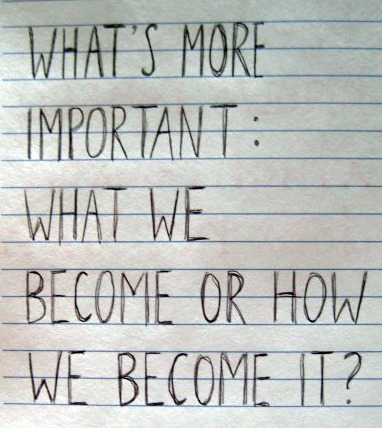 WHAT'S MORE
IMPORTANT:
WHAT WE
BECOME OR HOW
WE BECOME IT?